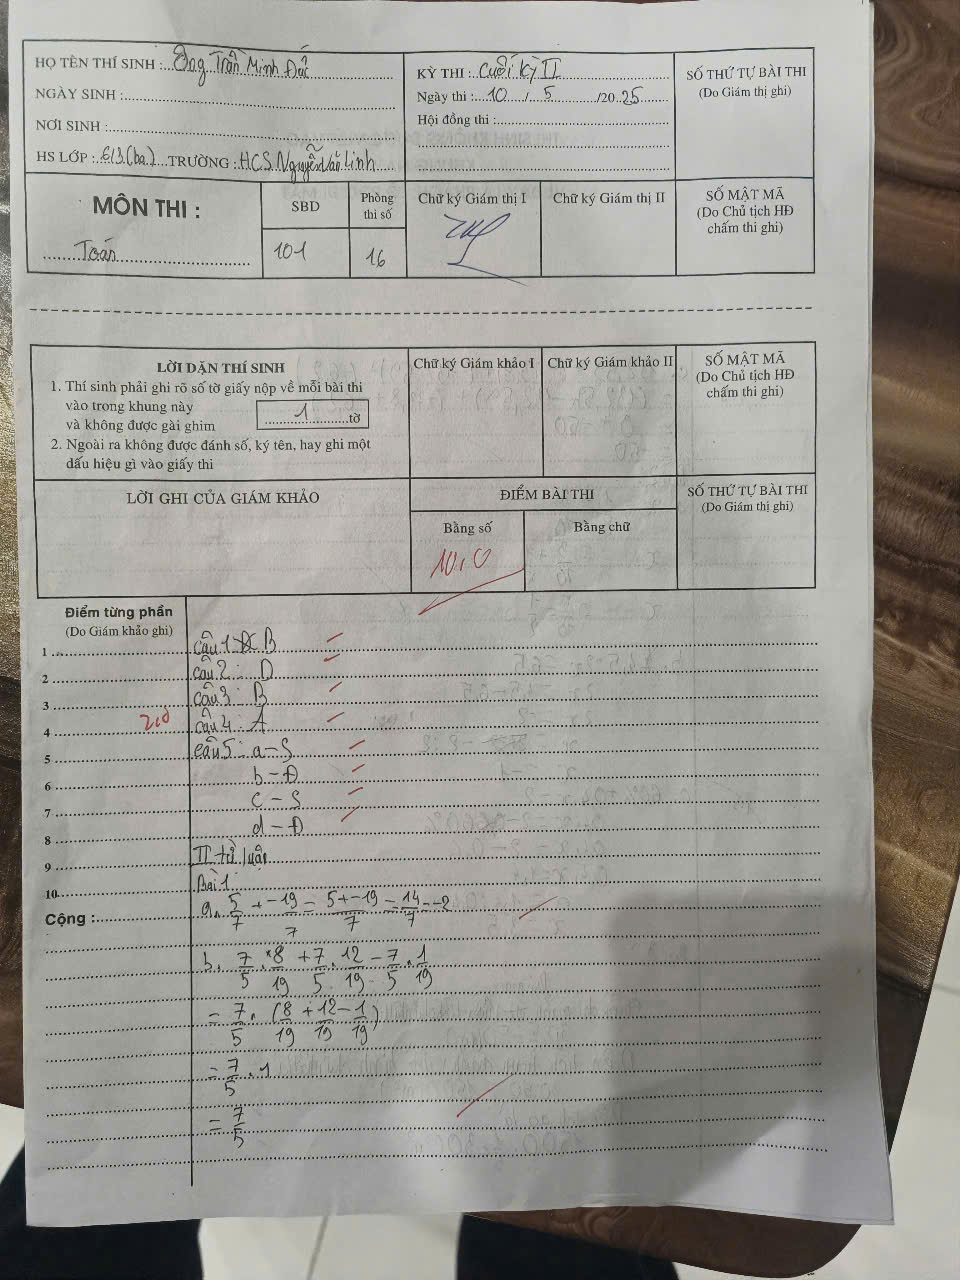 HỌ TÊN THÍ SINH : Trần Minh Đức
NGÀY SINH :
NƠI SINH :
HS LỚP : 6/3 (ba) TRƯỜNG : HCS Nguyễn Văn Linh
KỲ THI : Cuối kỳ II
Ngày thi : 10 / 5 /2025
Hội đồng thi :
SỐ THỨ TỰ BÀI THI
(Do Giám thị ghi)
MÔN THI :
Toán
SBD
101
Phòng
thi số
16
Chữ ký Giám thị I
Chữ ký Giám thị II
SỐ MẬT MÃ
(Do Chủ tịch HĐ
chấm thi ghi)
LỜI DẶN THÍ SINH
1. Thí sinh phải ghi rõ số tờ giấy nộp về mỗi bài thi
vào trong khung này
và không được gài ghim 1 tờ
2. Ngoài ra không được đánh số, ký tên, hay ghi một
dấu hiệu gì vào giấy thi
Chữ ký Giám khảo I
Chữ ký Giám khảo II
SỐ MẬT MÃ
(Do Chủ tịch HĐ
chấm thi ghi)
LỜI GHI CỦA GIÁM KHẢO
ĐIỂM BÀI THI
Bằng số
Bằng chữ
10,0
SỐ THỨ TỰ BÀI THI
(Do Giám thị ghi)
Điểm từng phần
(Do Giám khảo ghi)
1 câu 1: B
2 câu 2: D
3 câu 3: B
4 câu 4: A
5 câu 5: a-S
6 b-Đ
7 c-S
8 d-Đ
9 II tự luận
10 Bài 1:
Cộng : a, 5/7 + -19/7 = 5+-19/7 = -14/7 = -2
b, 7/5 . 8/19 + 7/5 . 12/19 - 7/5 . 1/19
= 7/5 . (8/19 + 12/19 - 1/19)
= 7/5 . 1
= 7/5